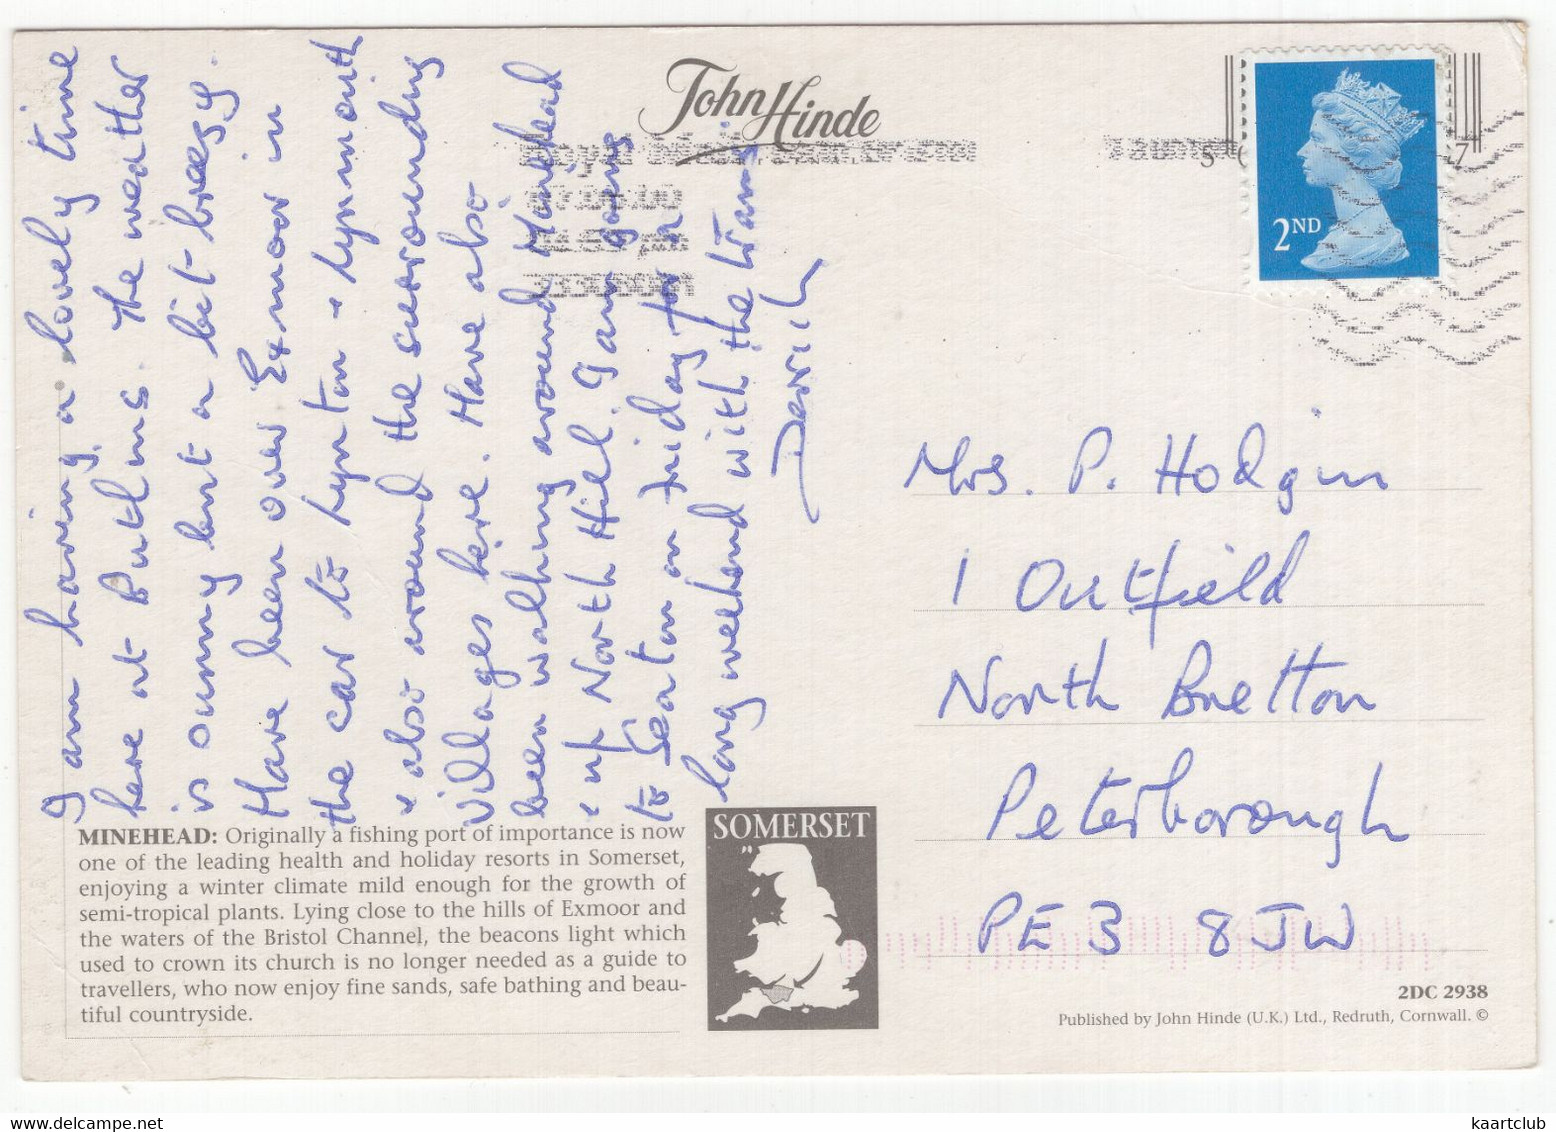 I am having a lovely time
here at Butlins. The weather
is sunny but a bit breezy.
Have been over Exmoor in
the car to Lynton & Lynmouth
& also around the surrounding
villages here. Have also
been walking around Minehead
& up North Hill. I am going
to Seaton on Friday for a
long weekend with the trams
Derrick
John Hinde
2ND
Mrs. P. Hodgin
1 Outfield
North Bretton
Peterborough
PE3 8JW
MINEHEAD: Originally a fishing port of importance is now
one of the leading health and holiday resorts in Somerset,
enjoying a winter climate mild enough for the growth of
semi-tropical plants. Lying close to the hills of Exmoor and
the waters of the Bristol Channel, the beacons light which
used to crown its church is no longer needed as a guide to
travellers, who now enjoy fine sands, safe bathing and beau-
tiful countryside.
SOMERSET
2DC 2938
Published by John Hinde (U.K.) Ltd., Redruth, Cornwall. ©
www.delcampe.net
kaartclub